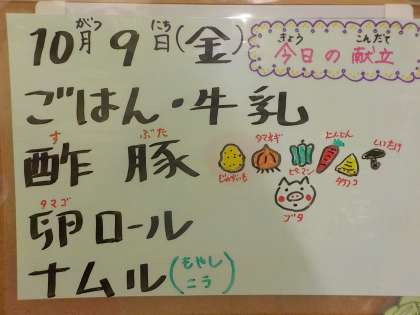 がつ にち
10月9日(金)
きょう こんだて
今日の献立
ごはん・牛乳
す ぶた
酢豚
じゃがいも タマネギ ピーマン にんじん タケノコ しいたけ
ブタ
タマゴ
卵ロール
ナムル(もやし ニラ)